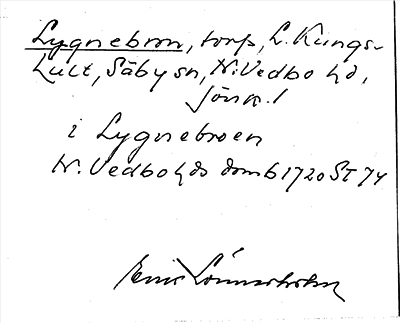 Lygnebron, torp, L. Kungs-
hult, Säby sn, N. Vedbo hd,
Jönk. l
i Lygnebroen
N. Vedbo hds domb 1720 ST 74
Lönnerholm